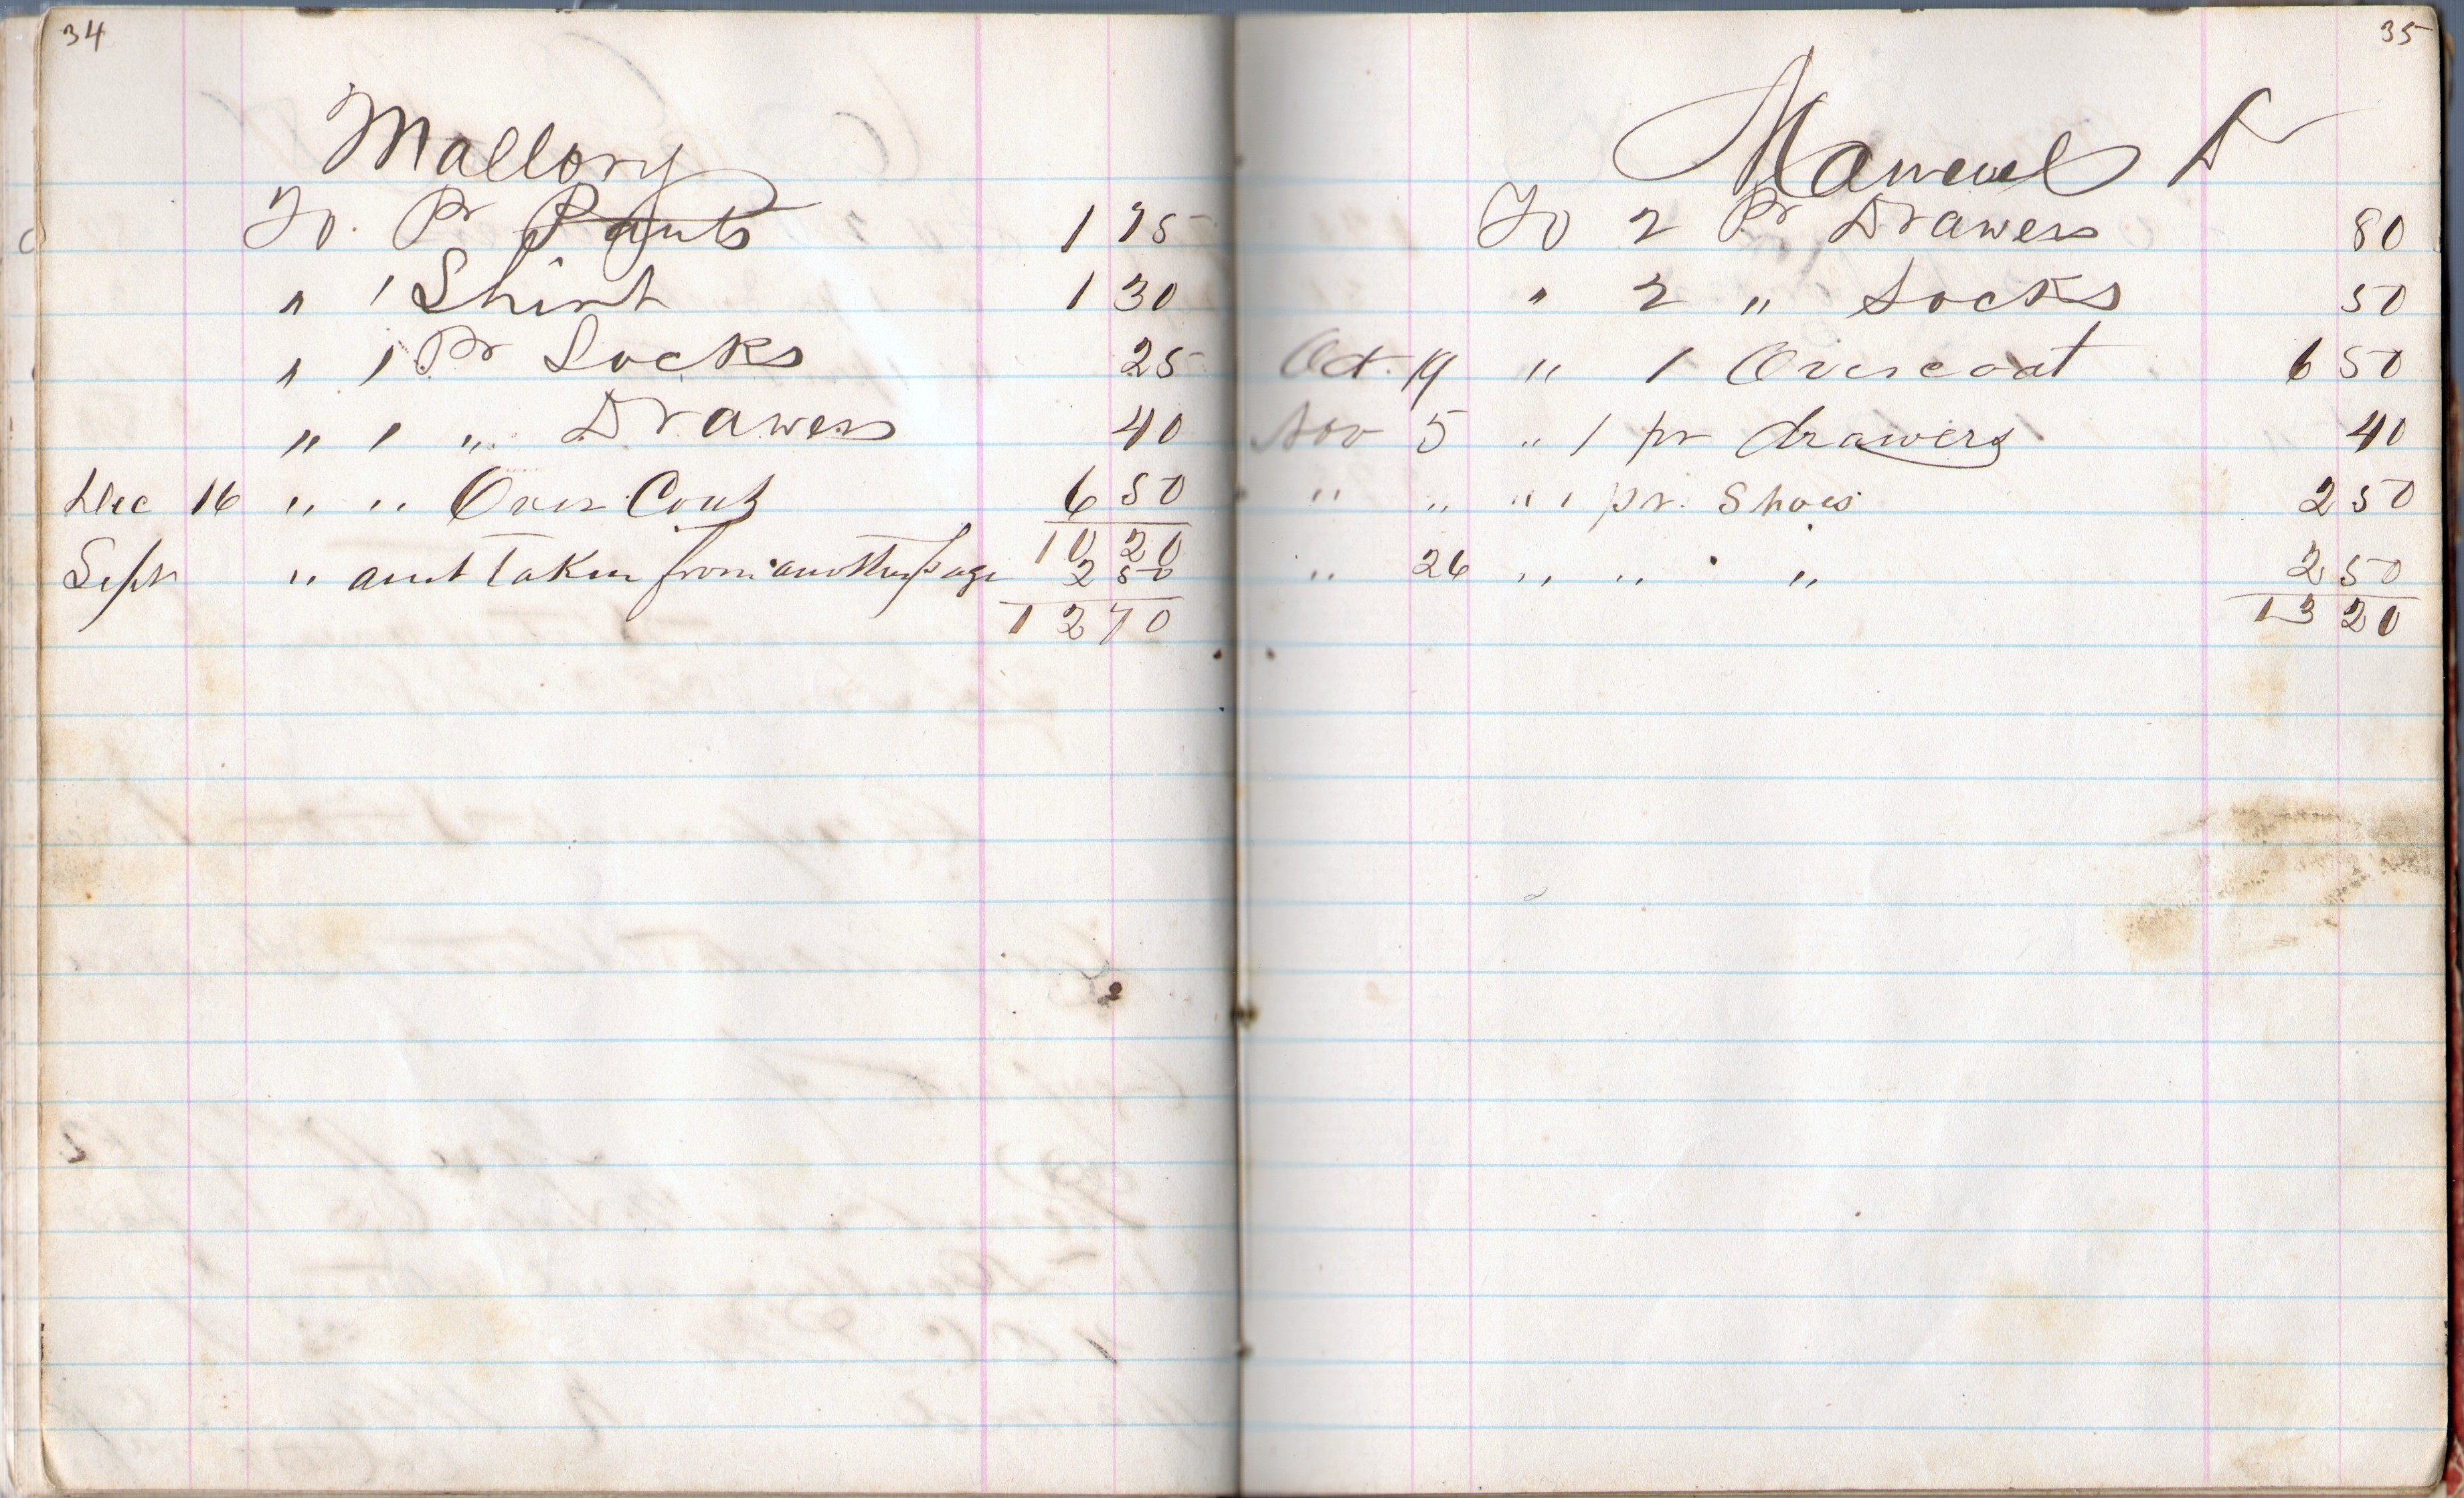 34
Mallory
To. Pr Pants 1 75
" 1 Shirt 1 30
" 1 Pr Socks 25
" 1 " Drawers 40
Dec 16 " " Over Coat 6 50
10 20
Sept " amt taken from another page 2 50
12 70
35
Manuel Dr
To 2 Pr Drawers 80
" 2 " Socks 50
Oct. 19 " 1 Overcoat 6 50
Nov 5 " 1 pr drawers 40
" " " 1 pr. Shoes 2 50
" 26 " " " " 2 50
13 20